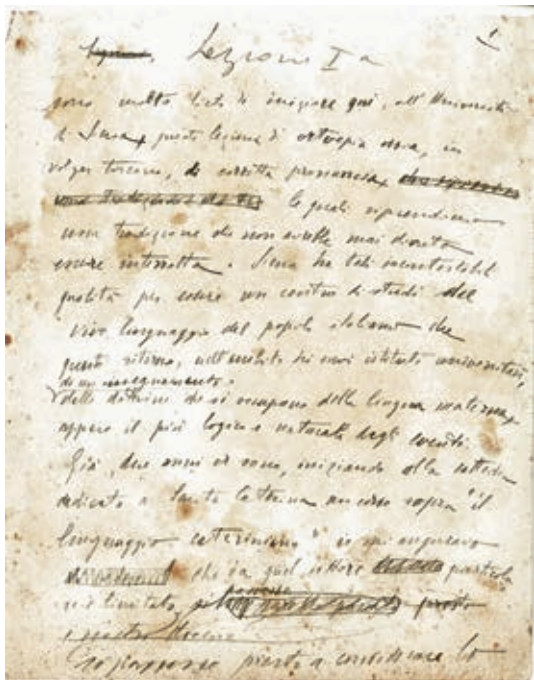 1
Lezione Iª
sono molto lieto di iniziare qui, all'Università
di Siena, queste lezioni di ortoepia ossia, in
volgar toscano, di corretta pronunzia,
le quali riprendono
una tradizione che non avrebbe mai dovuto
essere interrotta. Siena ha tali incontestabili
qualità per essere un centro di studi del
vivo linguaggio del popolo italiano che
questo ritorno, nell'ambito dei suoi istituti universitari,
di un insegnamento
delle dottrine che si occupano della lingua materna,
appare il più logico e naturale degli eventi.
Già, due anni or sono, iniziando alla cattedra
dedicata a Santa Caterina un corso sopra "il
linguaggio cateriniano" io mi auguravo
che da quel settore particola
re e limitato, potesse presto
si passasse presto a considerare lo